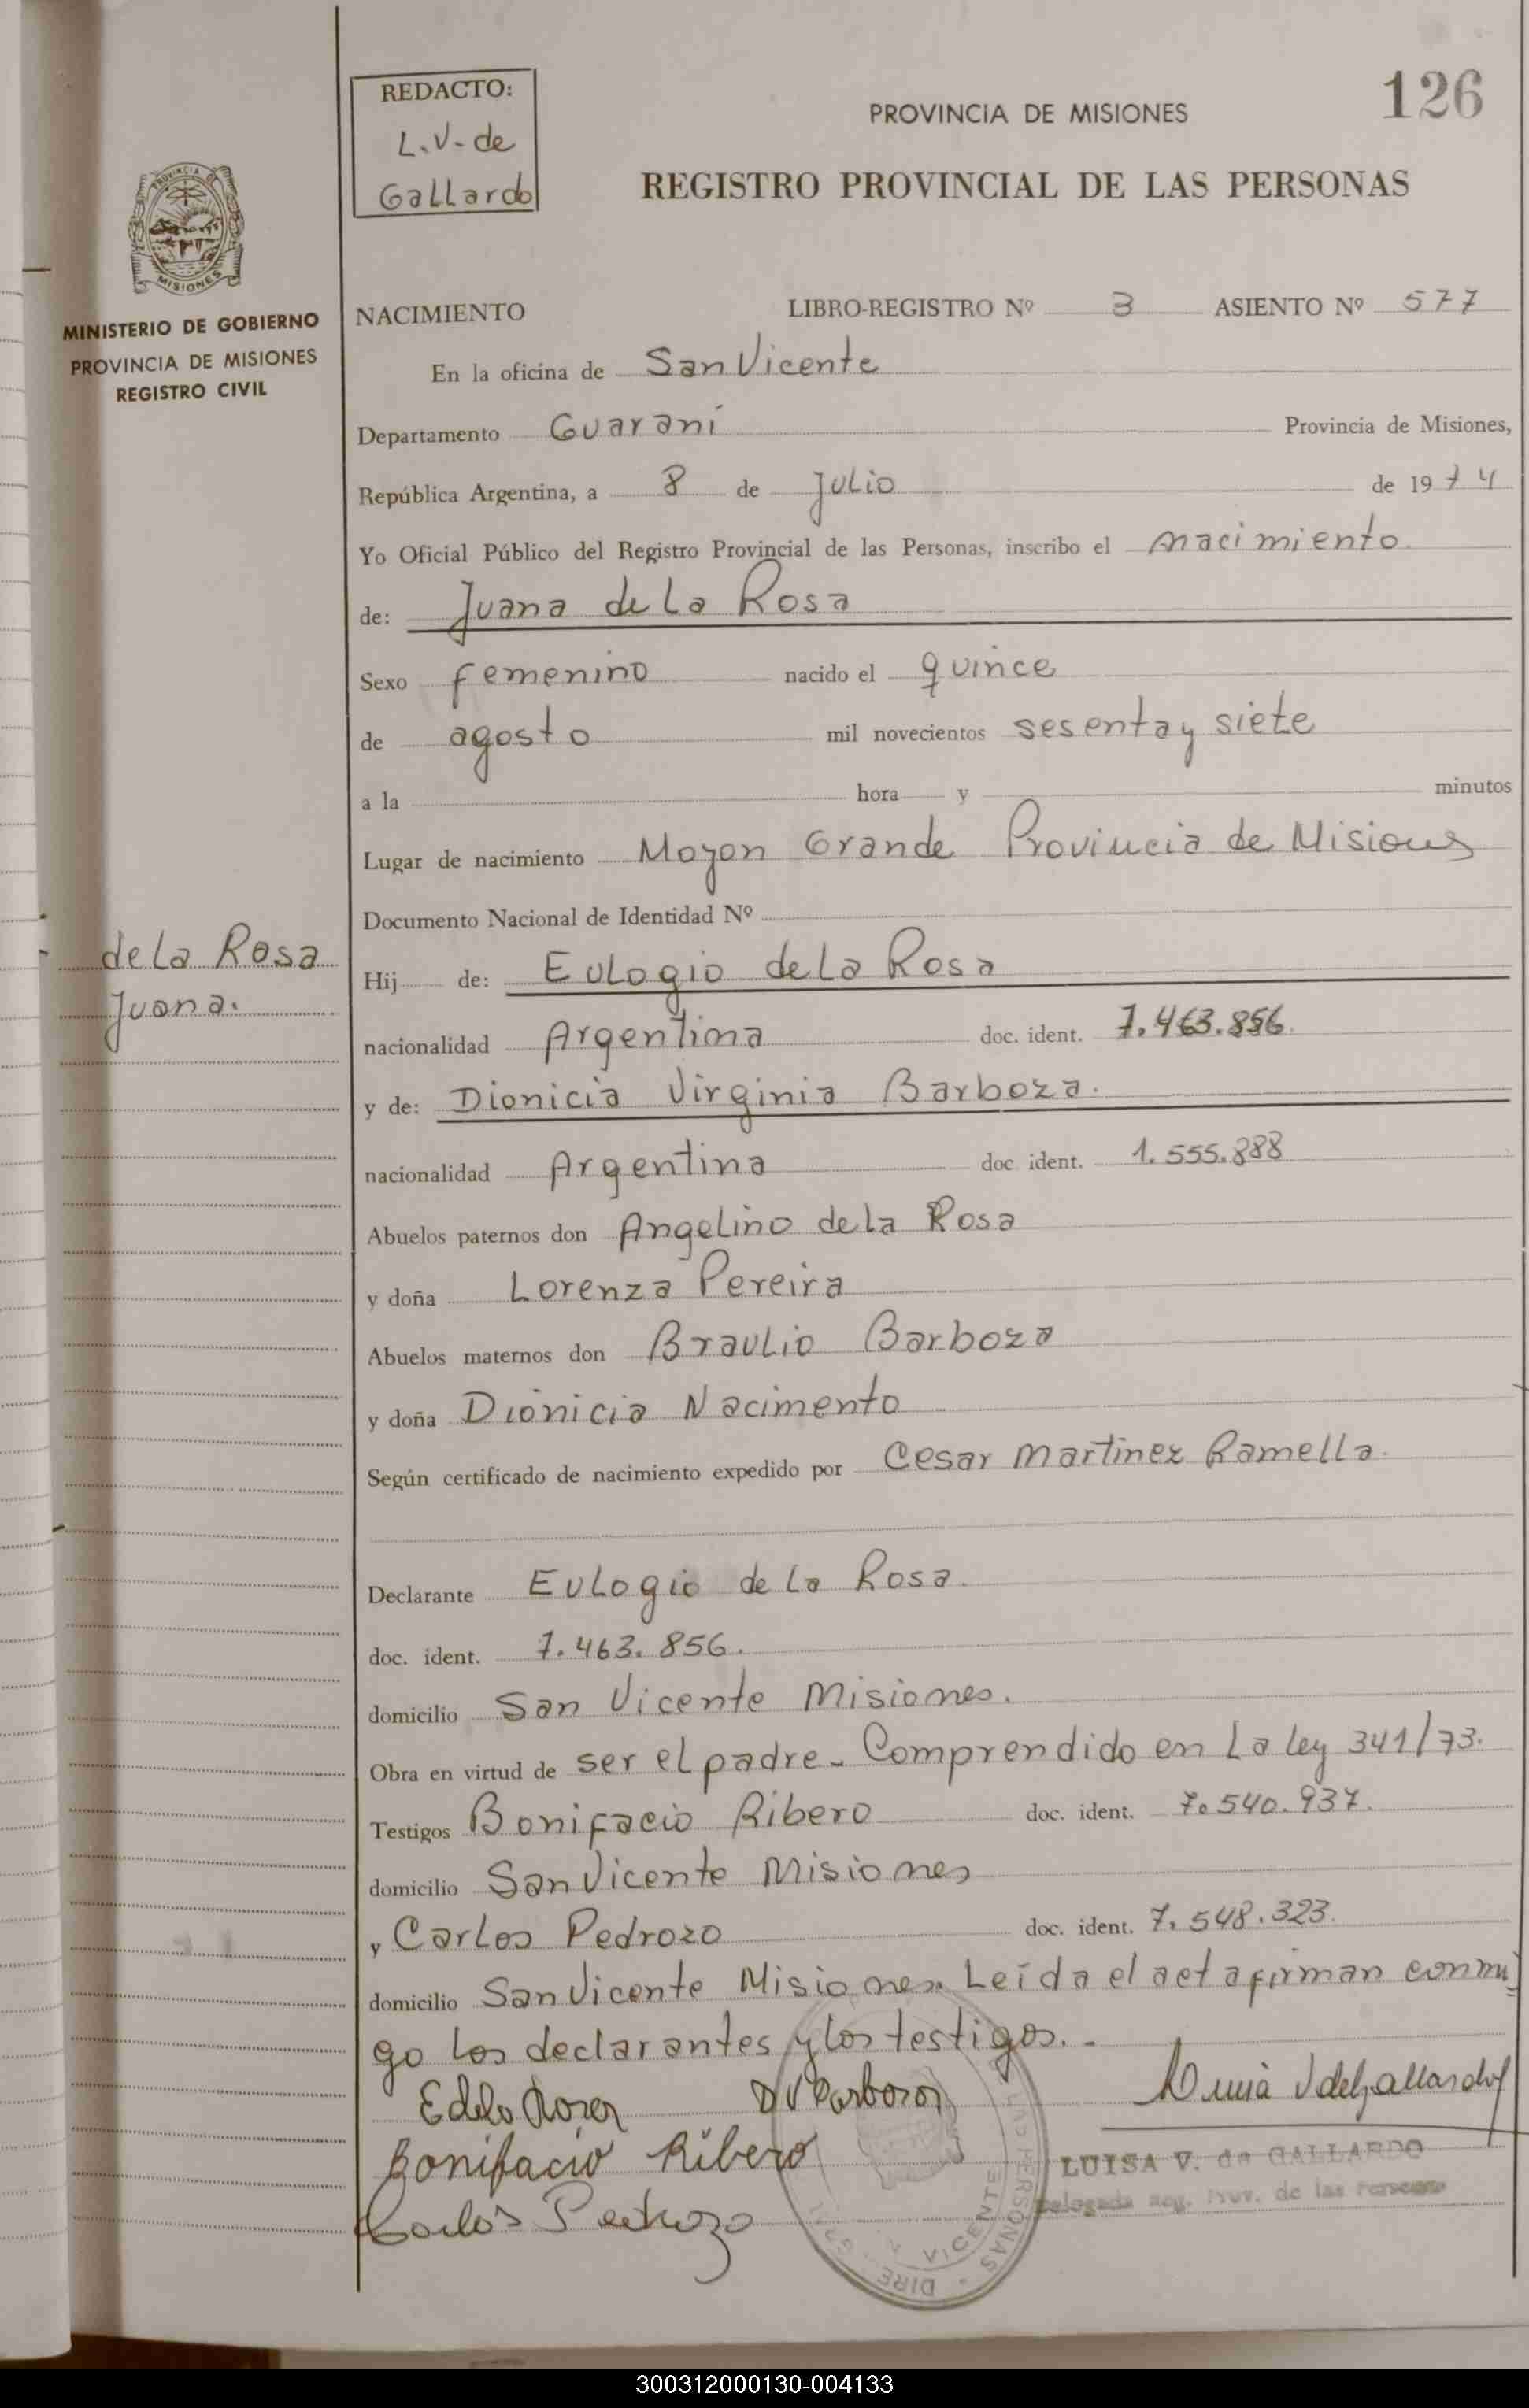 126
REDACTO:
L.V. de
Gallardo
PROVINCIA DE MISIONES
REGISTRO PROVINCIAL DE LAS PERSONAS
PROVINCIA DE
MISIONES
MINISTERIO DE GOBIERNO
PROVINCIA DE MISIONES
REGISTRO CIVIL
NACIMIENTO LIBRO-REGISTRO Nº 3 ASIENTO Nº 577
En la oficina de San Vicente
Departamento Guaraní Provincia de Misiones,
República Argentina, a 8 de Julio de 1974
Yo Oficial Público del Registro Provincial de las Personas, inscribo el nacimiento
de: Juana de La Rosa
Sexo femenino nacido el quince
de agosto mil novecientos sesenta y siete
a la hora y minutos
Lugar de nacimiento Moyon Grande Provincia de Misiones
Documento Nacional de Identidad Nº
de la Rosa
Juana.
Hij de: Eulogio de La Rosa
nacionalidad Argentina doc. ident. 7.463.856
y de: Dionicia Virginia Barboza.
nacionalidad Argentina doc. ident. 1.555.888
Abuelos paternos don Angelino de la Rosa
y doña Lorenza Pereira
Abuelos maternos don Braulio Barboza
y doña Dionicia Nacimento
Según certificado de nacimiento expedido por Cesar Martinez Ramella.
Declarante Eulogio de La Rosa.
doc. ident. 7.463.856.
domicilio San Vicente Misiones.
Obra en virtud de ser el padre - Comprendido en La Ley 341/73.
Testigos Bonifacio Ribero doc. ident. 7.540.937.
domicilio San Vicente Misiones
y Carlos Pedrozo doc. ident. 7.548.323.
domicilio San Vicente Misiones. Leída el acta firman conmi
go los declarantes y los testigos. -
D V Barboza
Bonifacio Ribero
Carlos Pedrozo
LUISA V. de GALLARDO
Delegada Reg. Prov. de las Personas
DIRE
PERSONAS
VICENTE
300312000130-004133